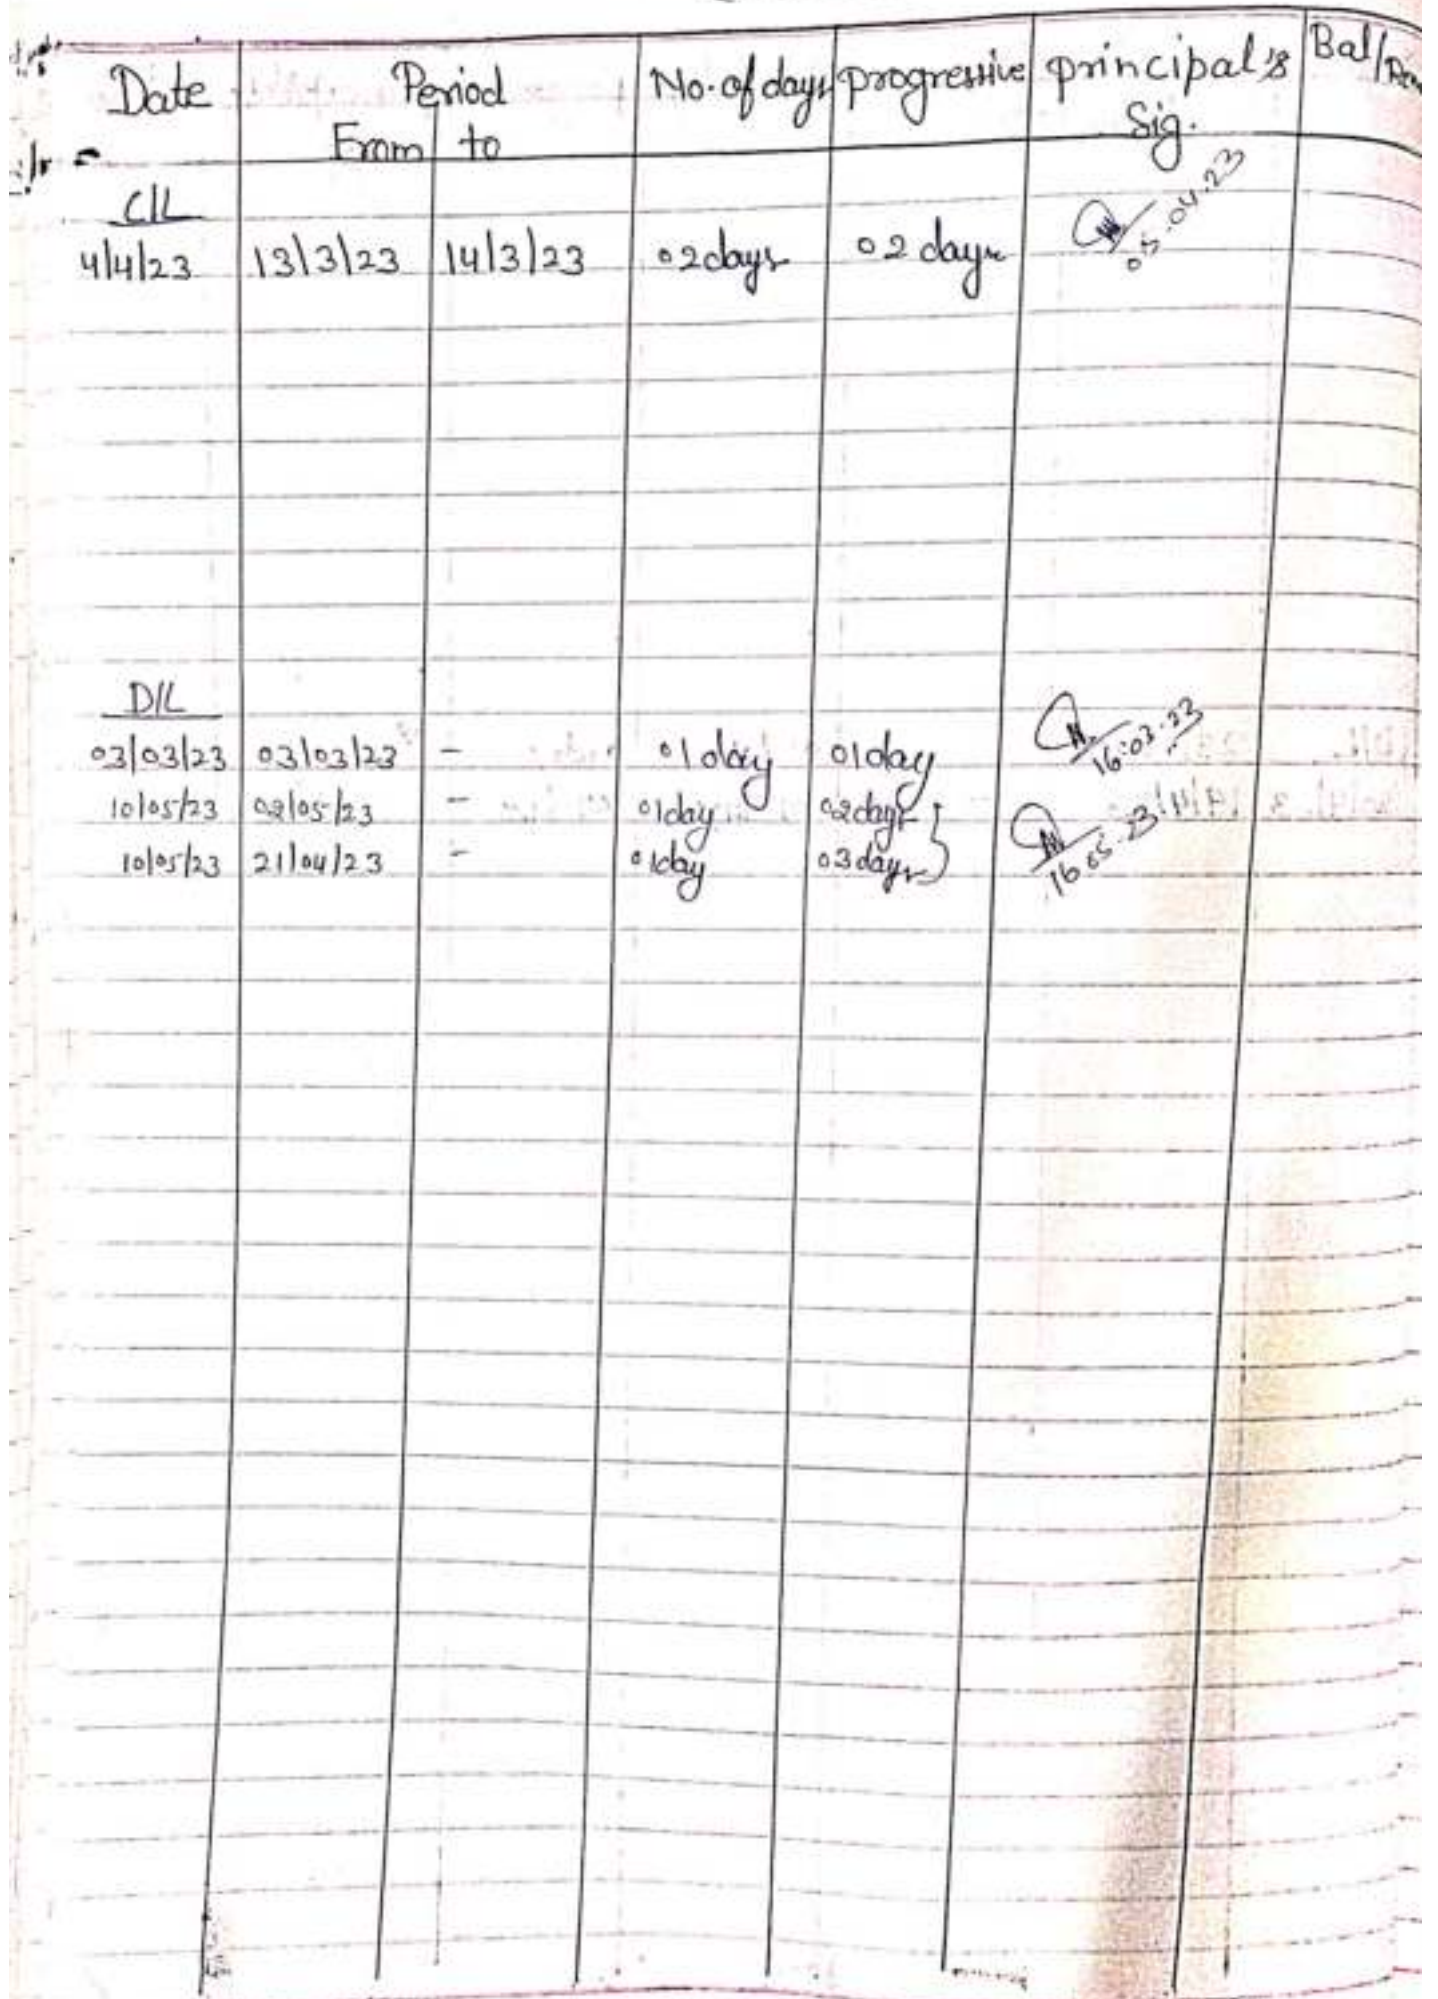 Date Period No. of days progressive principal's Bal/
From to Sig.
C/L
4/4/23 13/3/23 14/3/23 02 days 02 days 05.04.23
D/L
03/03/23 03/03/23 - 01 day 01 day 16.03.23
10/05/23 02/05/23 - 01 day 02 days
10/05/23 21/04/23 - 01 day 03 days 16.05.23